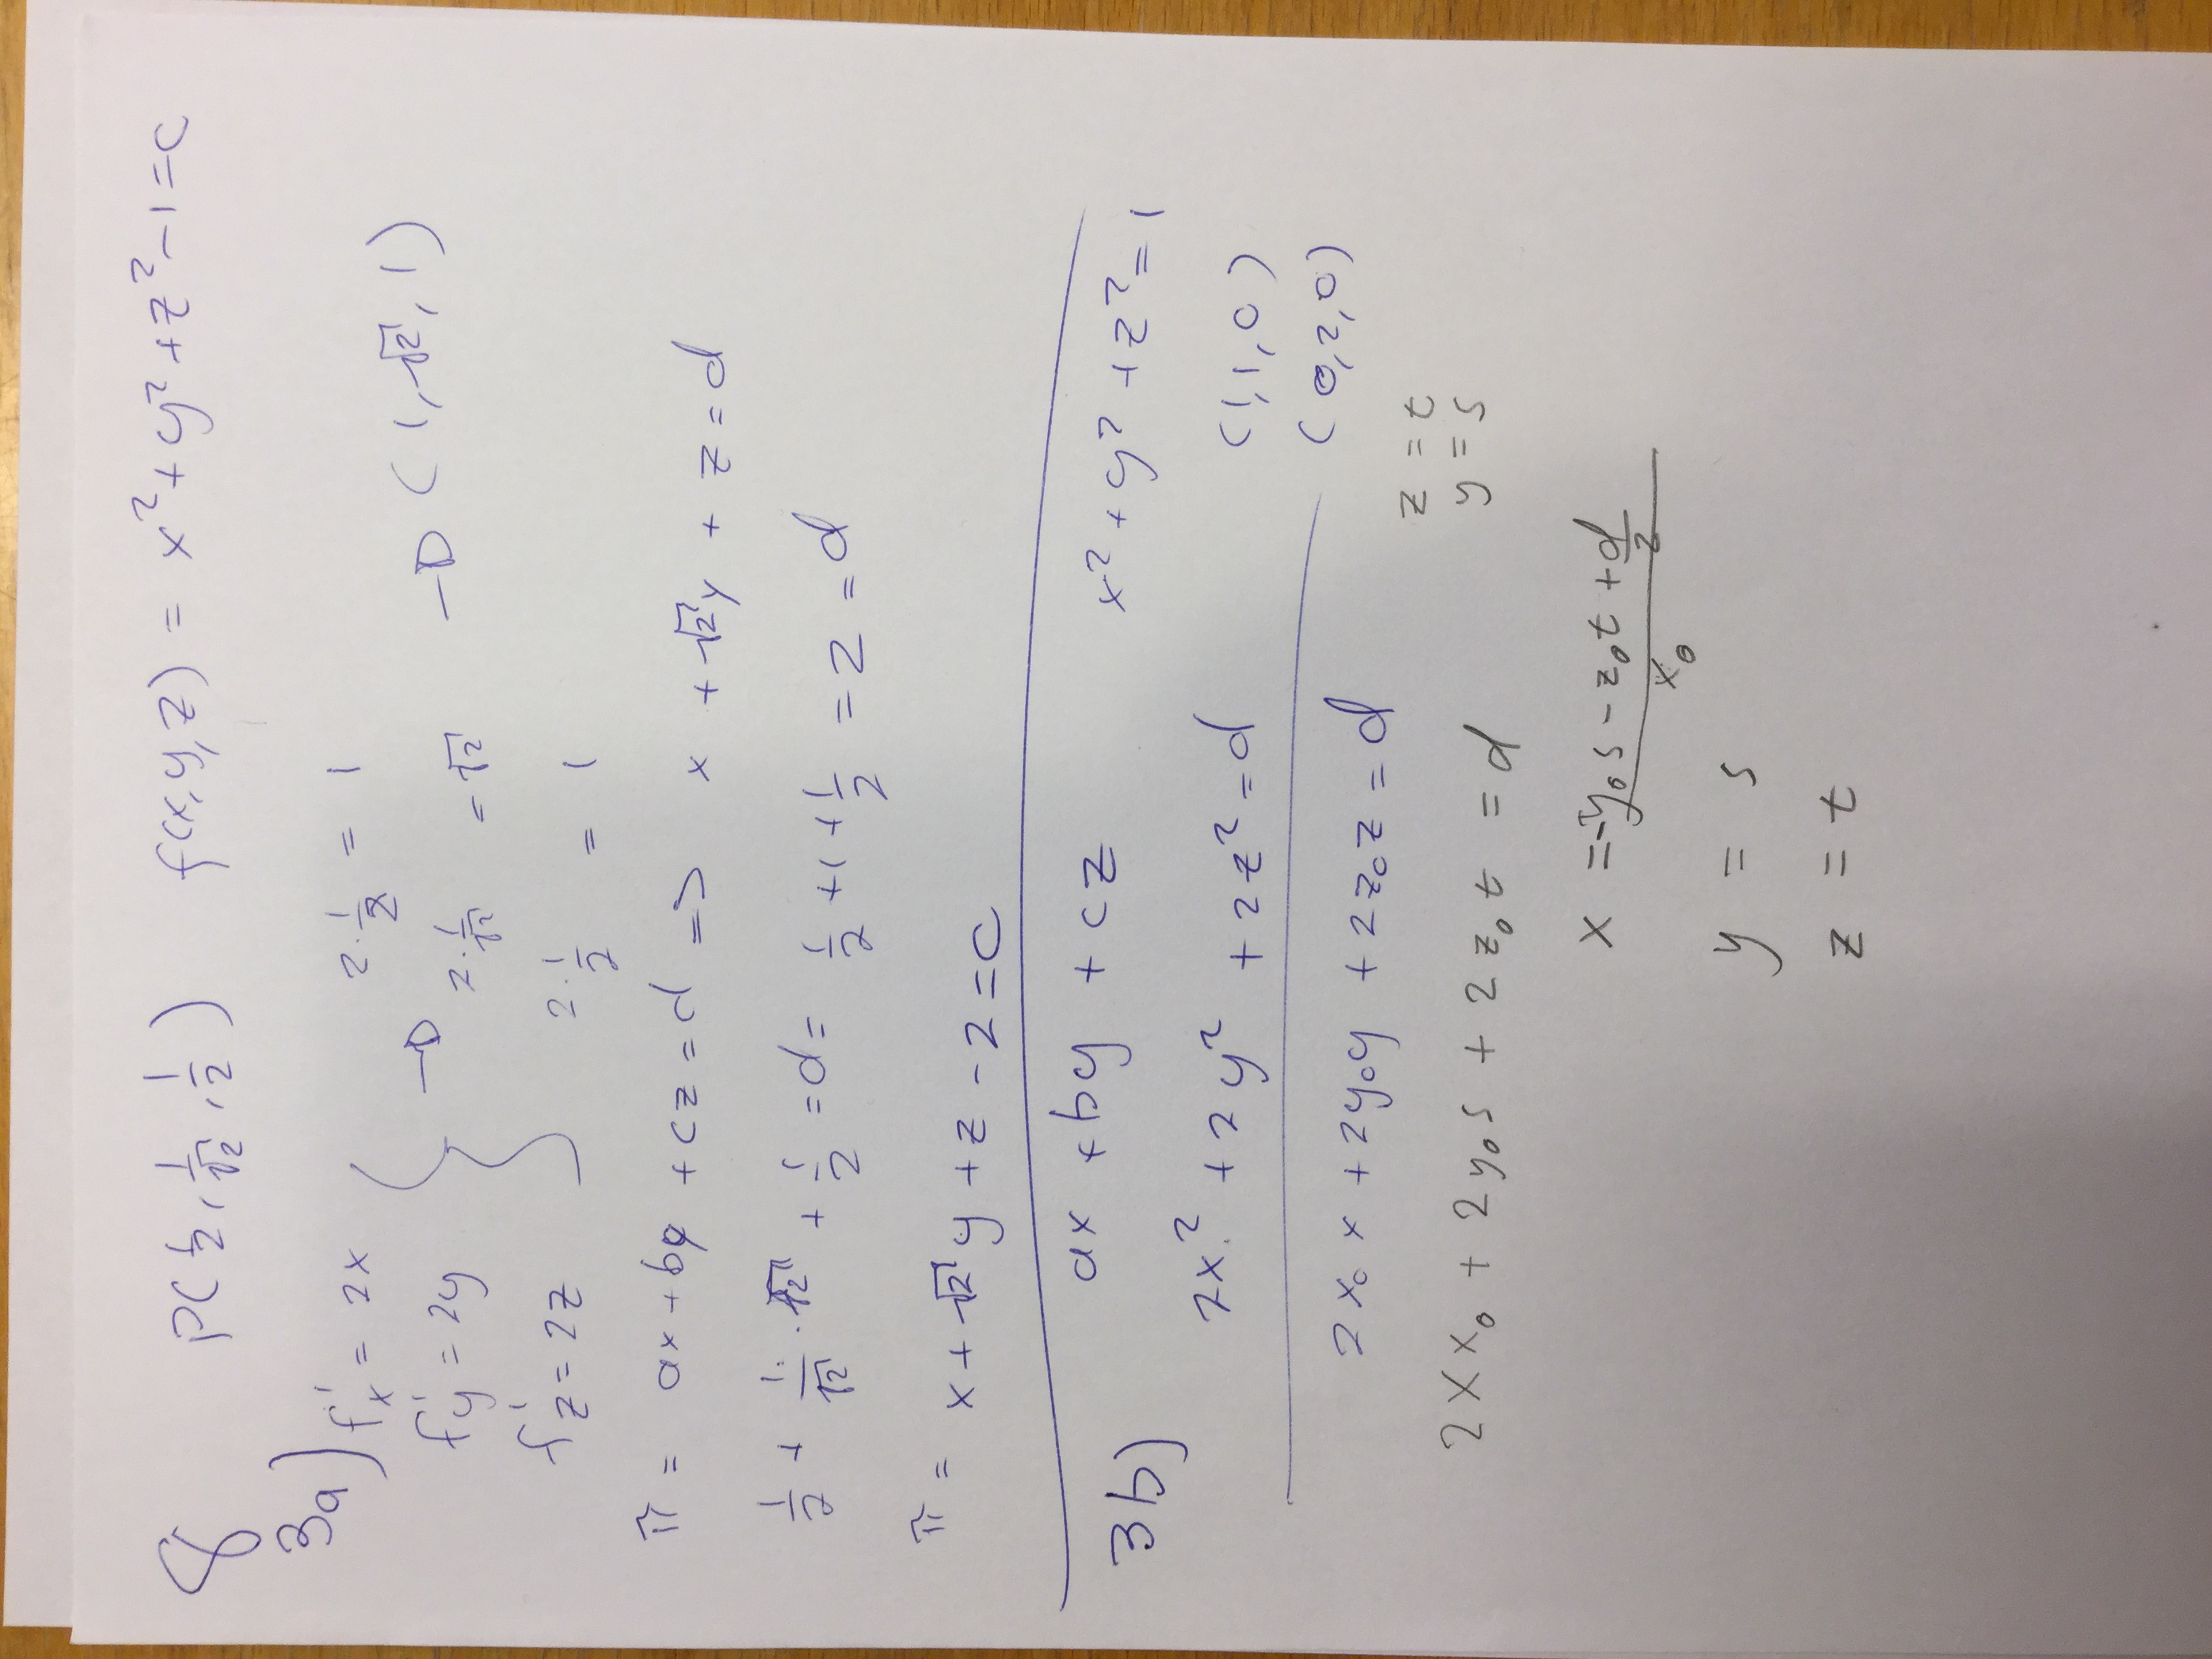 8 P(1/2, 1/√2, 1/2) f(x,y,z) = x² + y² + z² - 1 = c
3a) f'x = 2x 2·1/2 = 1
f'y = 2y -D 2·1/√2 = √2 -D (1, √2, 1)
f'z = 2z 2·1/2 = 1
π = ax + by + cz = d => x + √2y + z = d
1/2 + 1/√2 · √2 + 1/2 = d = 1/2 + 1 + 1/2 = 2 = d
π = x + √2 y + z - 2 = c
3b) ax + by + cz x² + y² + z² = 1
2x² + 2y² + 2z² = d (1,1,0)
(0,2,0)
2x₀x + 2y₀y + 2z₀z = d
z = t
2xx₀ + 2y₀s + 2z₀t = d y = s
x = (-y₀s - z₀t + d/2)/x₀
y = s
z = t